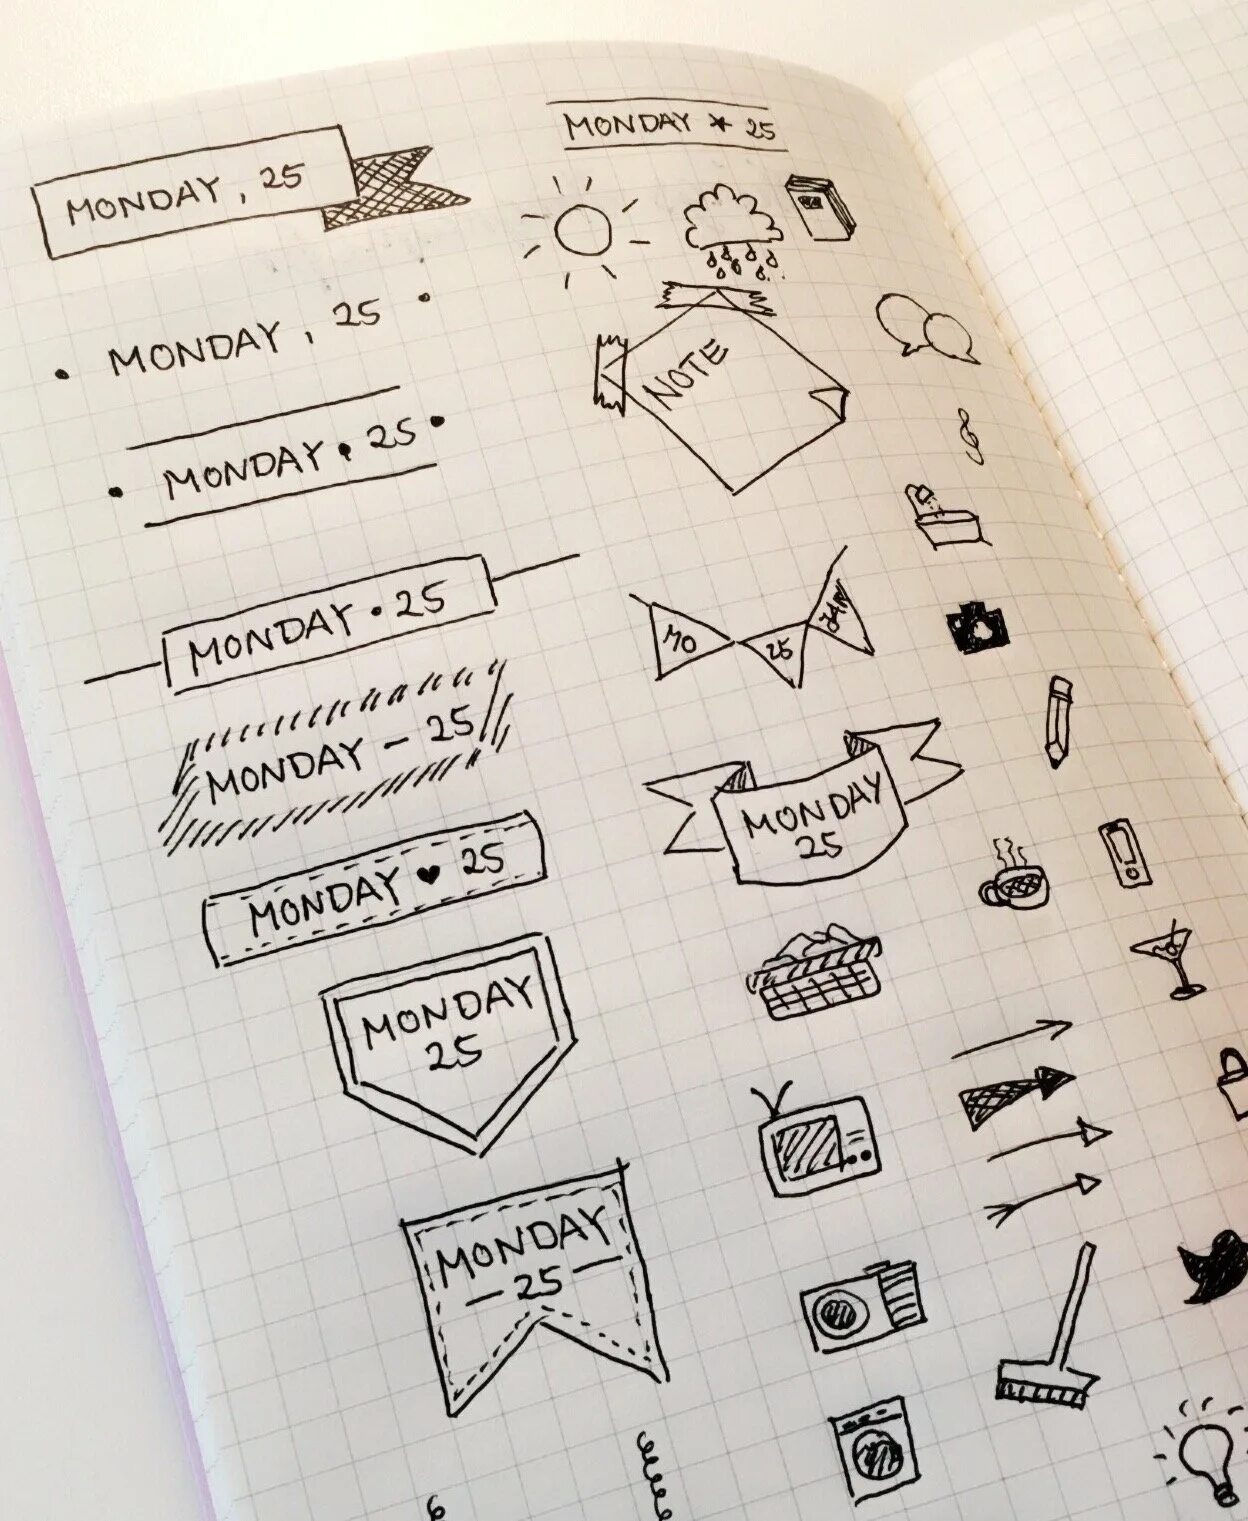 MONDAY, 25
MONDAY * 25
MONDAY, 25
MONDAY • 25
MONDAY • 25
MONDAY – 25
MONDAY ♥ 25
MONDAY
25
MONDAY
– 25 –
NOTE
MO
25
JAN
MONDAY
25